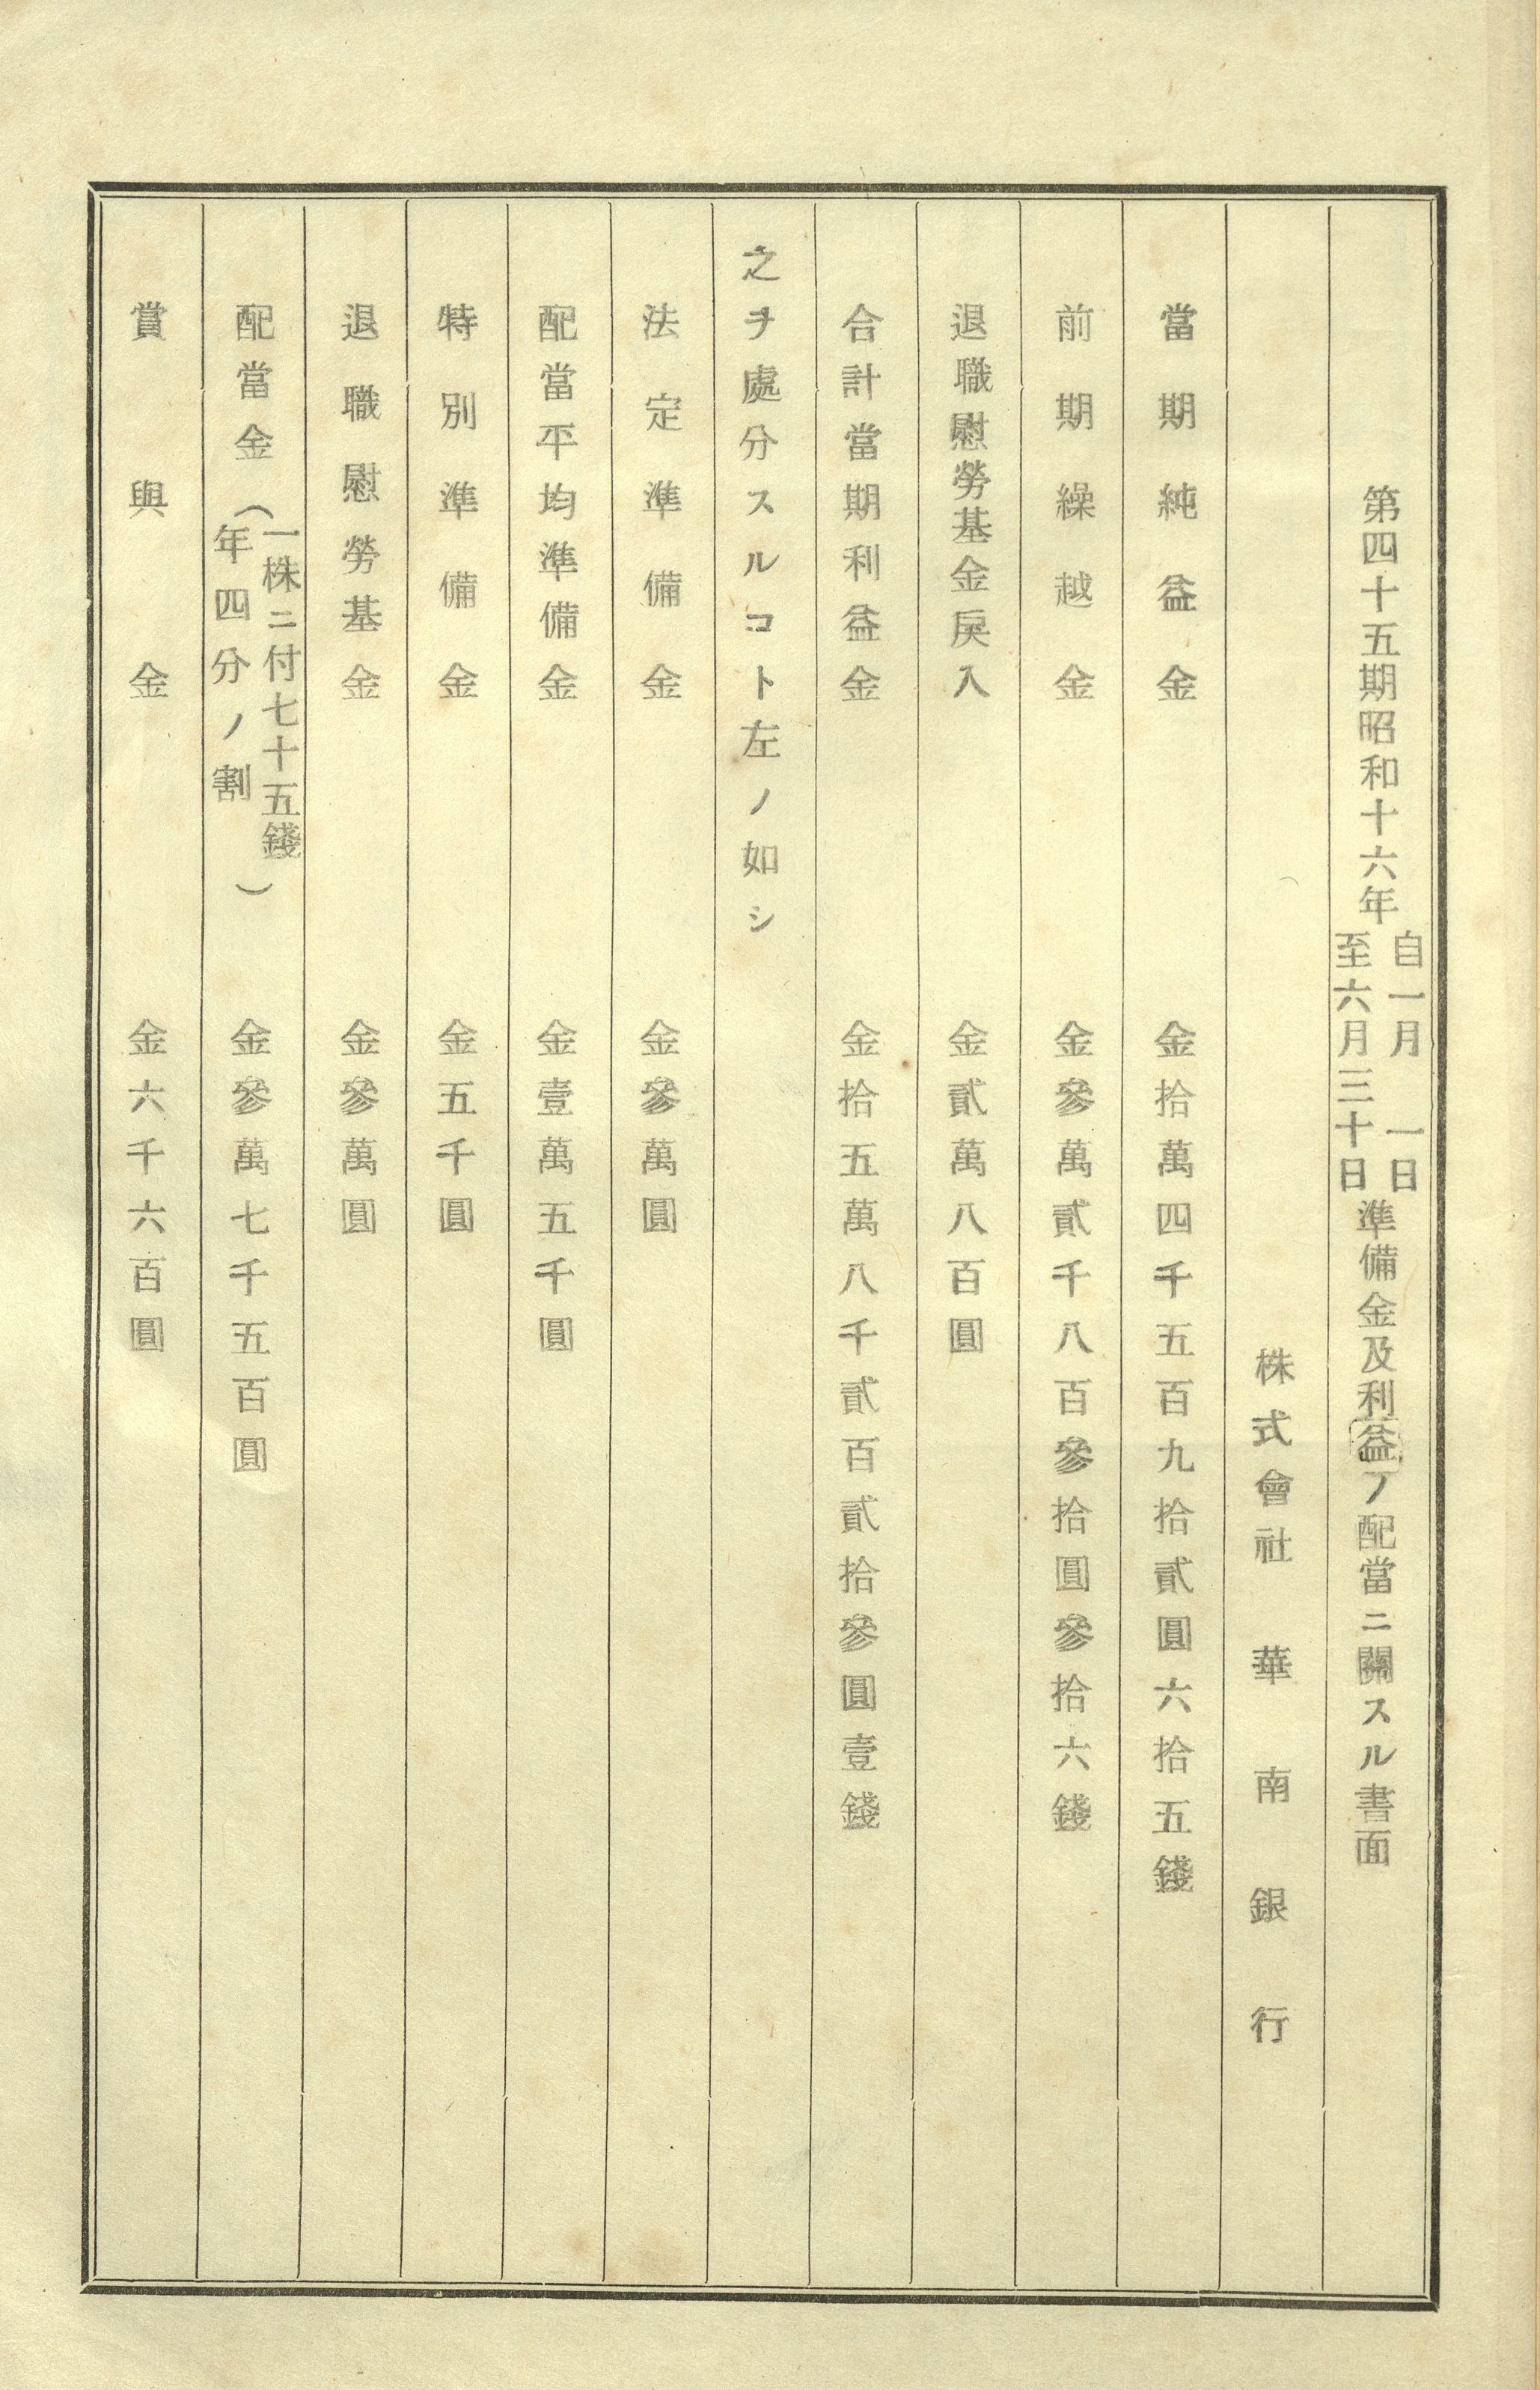 第四十五期昭和十六年自一月一日至六月三十日準備金及利益ノ配當ニ關スル書面
株式會社華南銀行
當期純益金 金拾萬四千五百九拾貳圓六拾五錢
前期繰越金 金參萬貳千八百參拾圓參拾六錢
退職慰勞基金戾入 金貳萬八百圓
合計當期利益金 金拾五萬八千貳百貳拾參圓壹錢
之ヲ處分スルコト左ノ如シ
法定準備金 金參萬圓
配當平均準備金 金壹萬五千圓
特別準備金 金五千圓
退職慰勞基金 金參萬圓
配當金（一株ニ付七十五錢年四分ノ割） 金參萬七千五百圓
賞與金 金六千六百圓